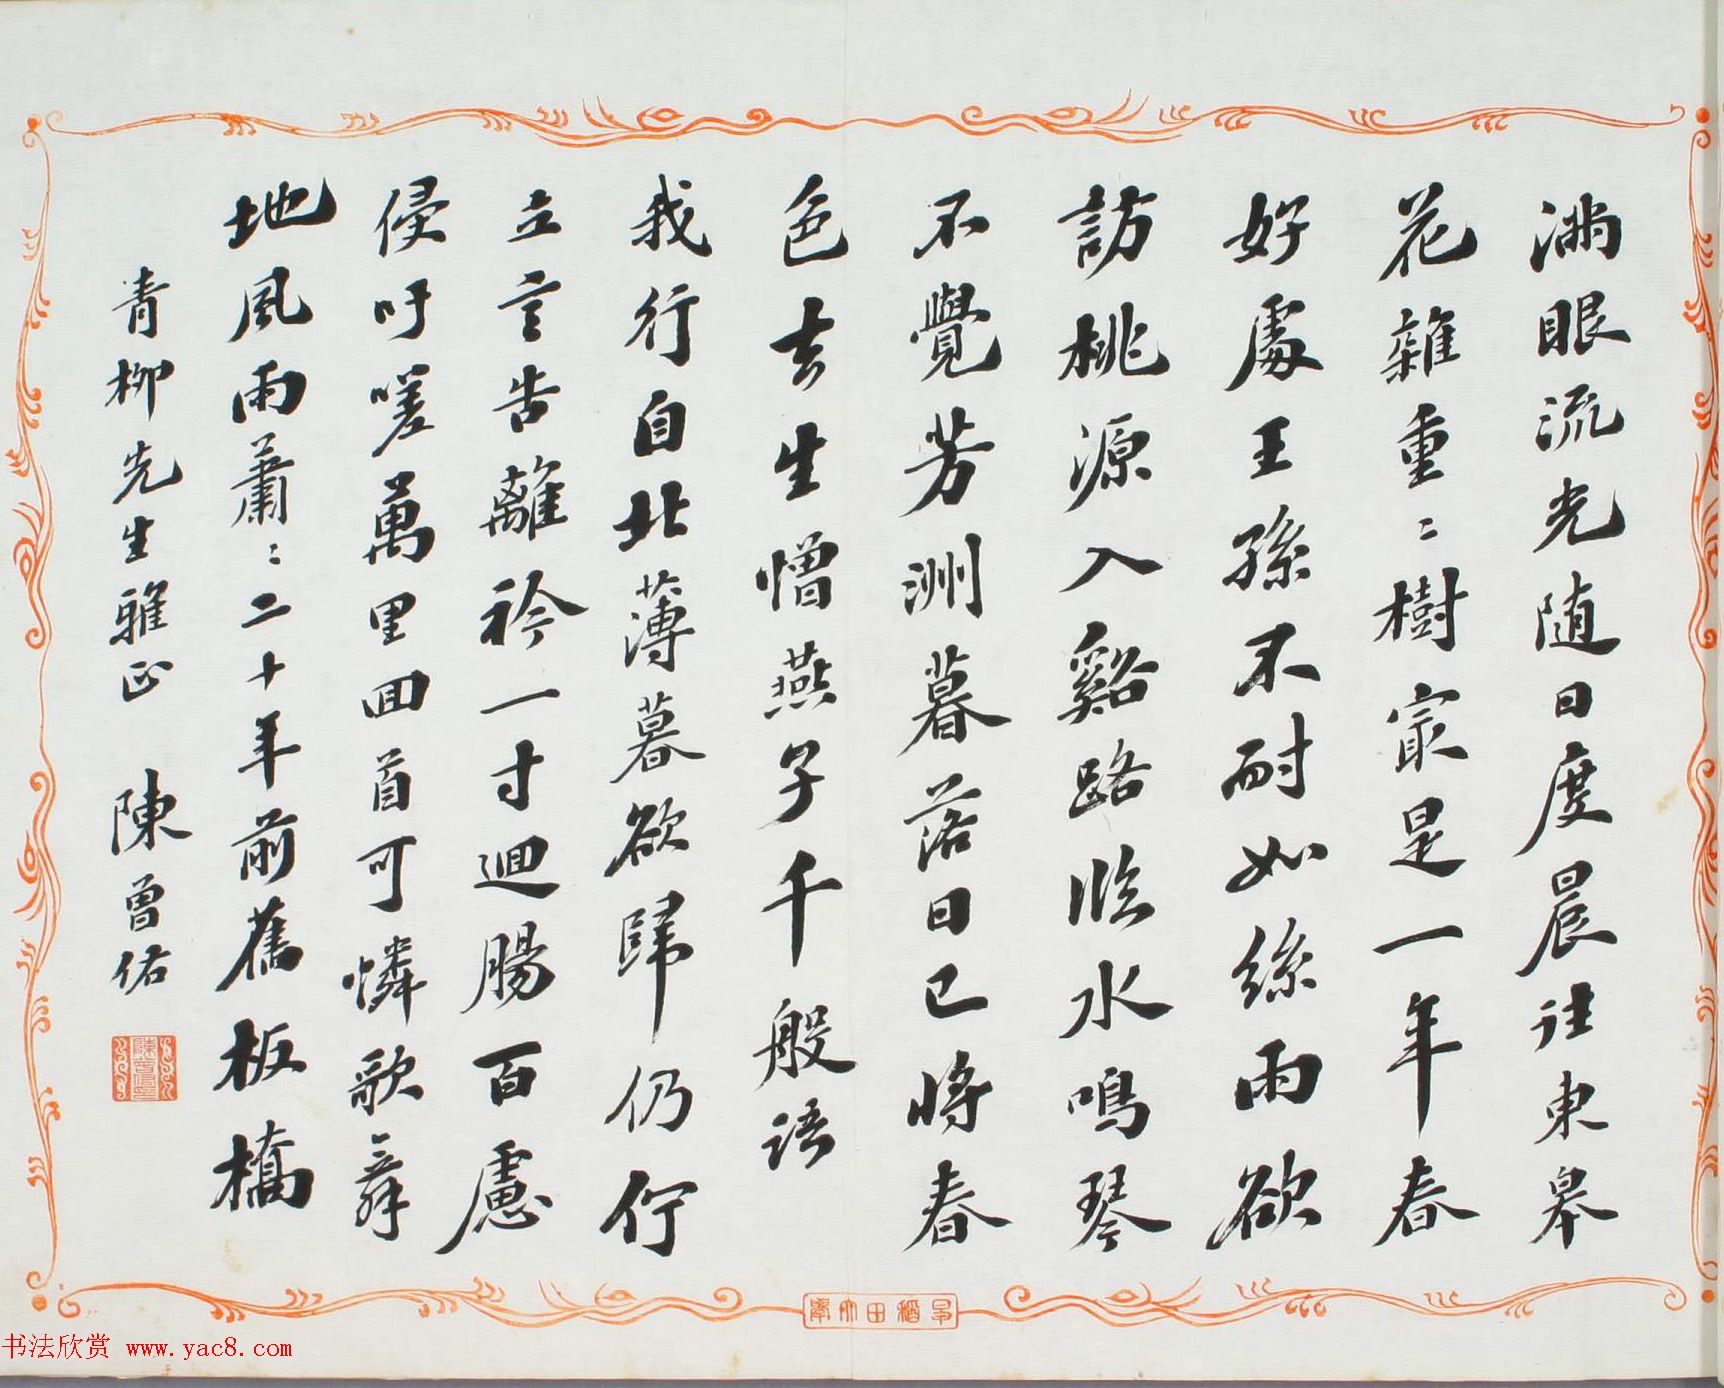 满眼流光随日度晨往東皋
花雜重〻樹寂是一年春
好處王孫不耐如絲雨欲
訪桃源入谿路临水鳴琴
不覺芳洲暮落日已将春
色去生憎燕子千般语
我行自北薄暮欲歸仍佇
立言告離衿一寸迴腸百慮
侵吁嗟萬里回首可憐歌舞
地風雨蕭〻二十年前舊板橋
青柳先生雅正 陳曾佑
早稻田大學
书法欣赏 www.yac8.com